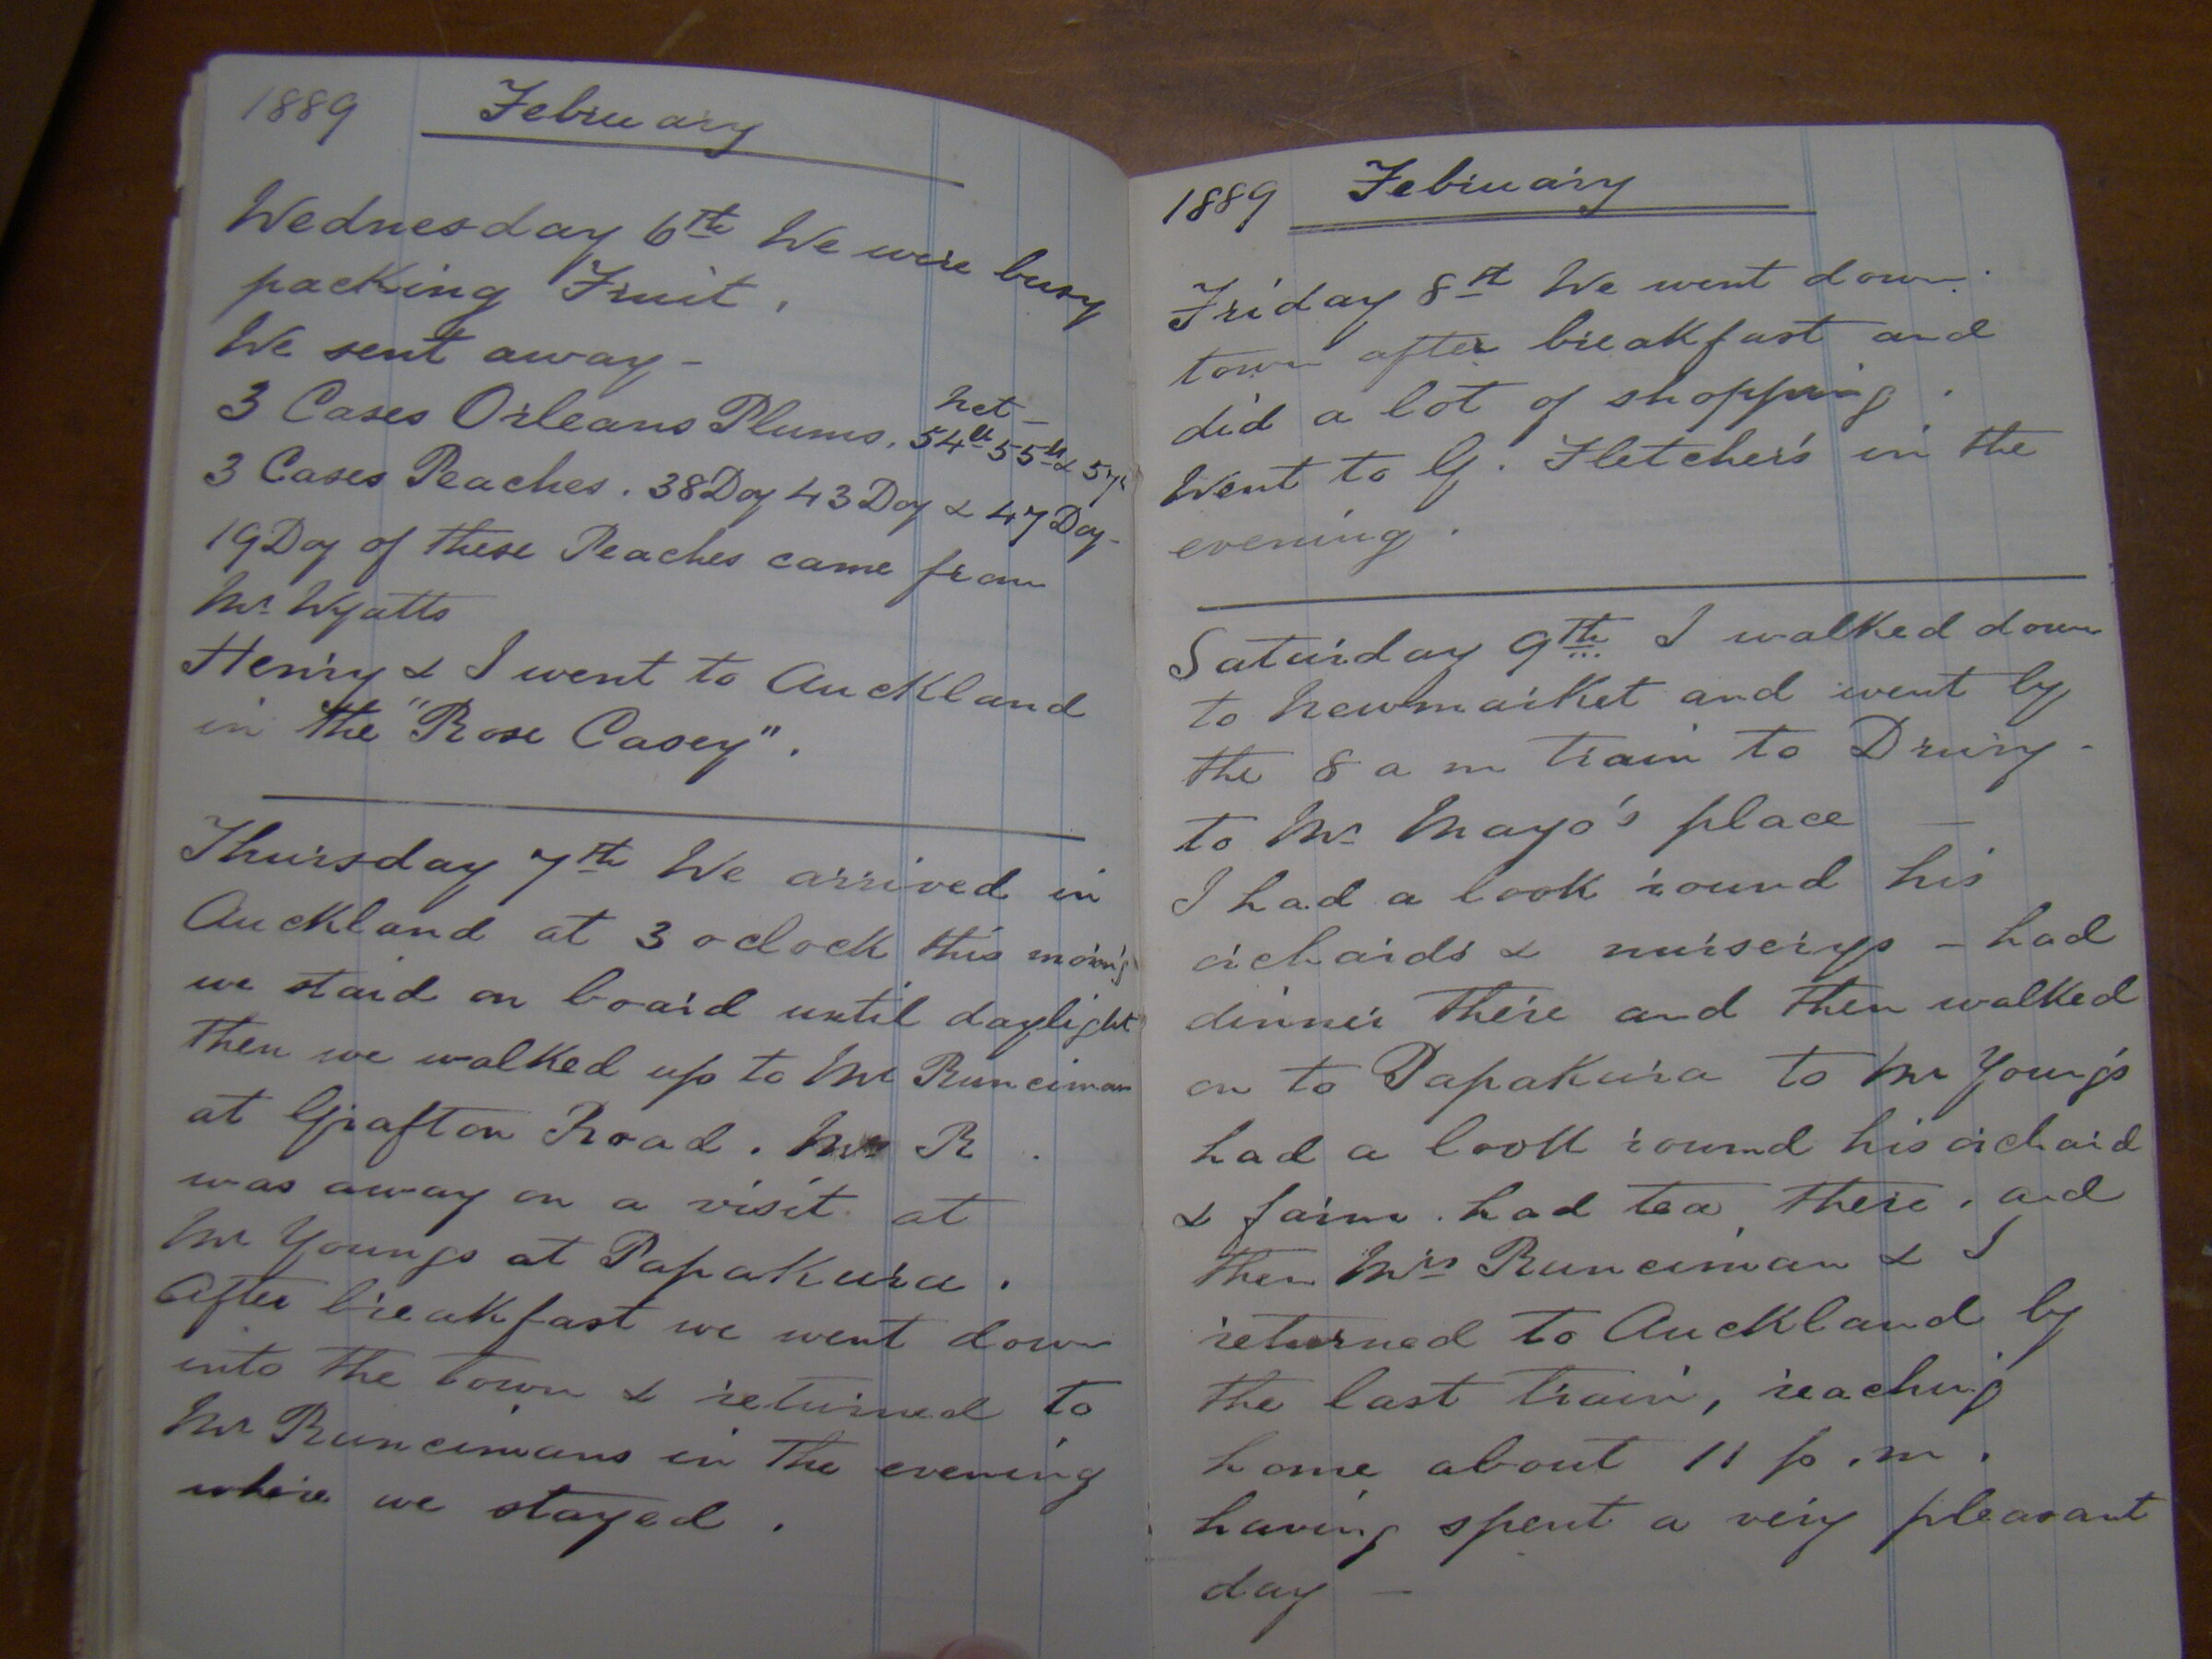 1889 February
Wednesday 6th We were busy
packing Fruit.
We sent away -
net -
3 Cases Orleans Plums. 54lb 55lb & 57
3 Cases Peaches. 38Doz 43Doz & 47Doz -
19Doz of these Peaches came from
Mr Wyatts
Henry & I went to Auckland
in the "Rose Casey".
Thursday 7th We arrived in
Auckland at 3 oclock this morn'g
we staid on board until daylight
then we walked up to Mr Runciman
at Grafton Road. Mrs R.
was away on a visit at
Mr Youngs at Papakura.
After breakfast we went down
into the town & returned to
Mr Runcimans in the evening
where we stayed.
1889 February
Friday 8st We went down
town after breakfast and
did a lot of shopping.
Went to G. Fletcher's in the
evening.
Saturday 9th I walked down
to Newmarket and went by
the 8 a m train to Drury -
to Mr Mayo's place -
I had a look round his
orchards & nurserys - had
dinner there and then walked
on to Papakura to Mr Young's
had a look round his orchard
& farm. had tea there, and
then Mrs Runciman & I
returned to Auckland by
the last train, reaching
home about 11 p.m.
having spent a very pleasant
day -